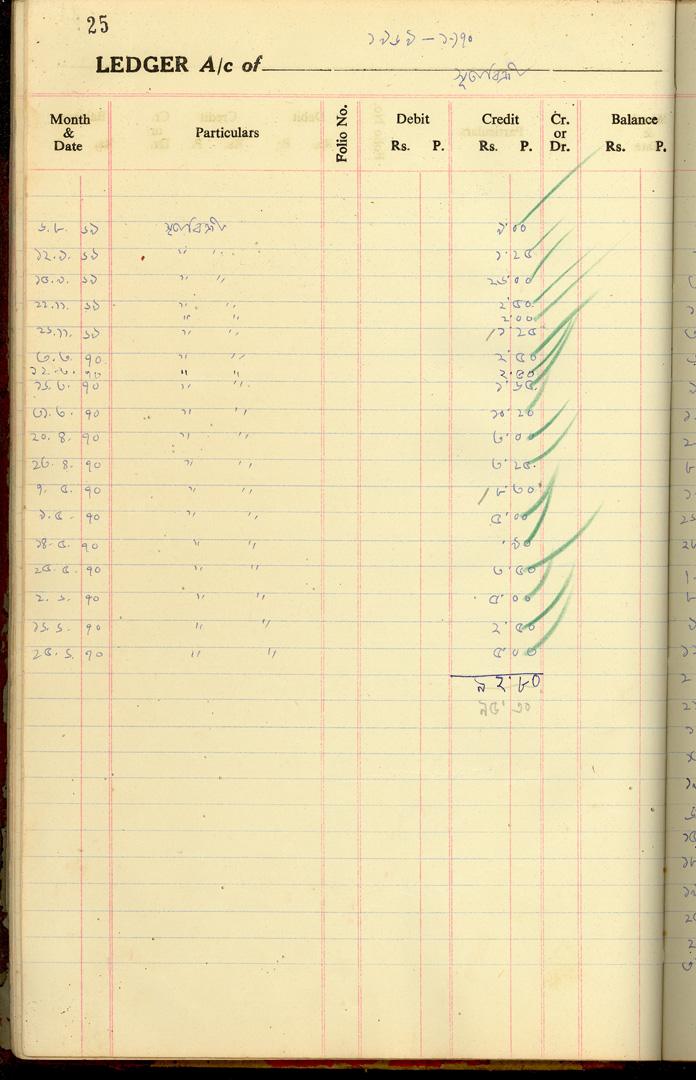 25
১৯৬৯ – ১৯৭০
LEDGER A/c of
Month & Date Particulars Folio No. Debit Rs. P. Credit Rs. P. Cr. or Dr. Balance Rs. P.
৬.৮. ৬৯ ৯.০০
১২.৯. ৬৯ " " ১.২৫
১৫.৯. ৬৯ " " ২৬.০০
২২.১১. ৬৯ " " ২.৫০
" " ২.০০
২৬.১১. ৬৯ " " ১.২৫
৩.৩. ৭০ " " ২.৫০
১২.৩. ৭০ " " ২.৫০
১৬.৩. ৭০ " " ১.৬৫
৩১.৩. ৭০ " " ১০.২০
২০.৪. ৭০ " " ৩.০০
২৩.৪. ৭০ " " ৩.২৫
৭.৫. ৭০ " " ৮.৩০
৯.৫. ৭০ " " ৫.০০
১৪.৫. ৭০ " " .৯০
২৫.৫. ৭০ " " ৩.৫০
২.৬. ৭০ " " ৫.০০
১৬.৬. ৭০ " " ২.৫০
২৫.৬. ৭০ " " ৫.০০
৯২.৮০
৯৫.৩০